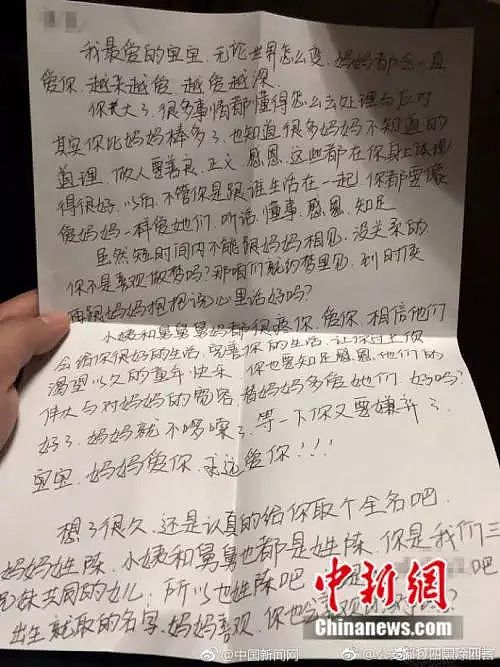 我最爱的宝宝，无论世界怎么变，妈妈都会一直
爱你，越来越爱，越爱越深。
你长大了，很多事情都懂得怎么去处理与应对
其实你比妈妈棒多了，也知道很多妈妈不知道的
道理，做人要善良、正义、感恩，这些都在你身上体现
得很好，以后，不管你是跟谁生活在一起，你都要像
爱妈妈一样爱她们，听话，懂事，感恩，知足
虽然短时间内不能跟妈妈相见，没关系的
你不是喜欢做梦吗？那咱们就约梦里见，到时候
再跟妈妈抱抱说心里话好吗？
小姨和舅舅舅妈都很疼你，爱你，相信他们
会给你很好的生活，完善你的生活，让你过上你
渴望以久的童年快乐，你也要知足感恩，他们的
伟大与对妈妈的宽容，替妈妈多爱她们，好吗？
好了，妈妈就不啰嗦了，等一下你又要嫌弃了
宝宝，妈妈爱你，永远爱你！！！
想了很久，还是认真的给你取个全名吧，
妈妈姓陈，小姨和舅舅也都是姓陈，你是我们三
兄妹共同的女儿，所以也姓陈吧
吧
出生就取的名字，妈妈喜欢，你也会喜欢的对
？
中新网
CHINANEWS
@中国新闻网